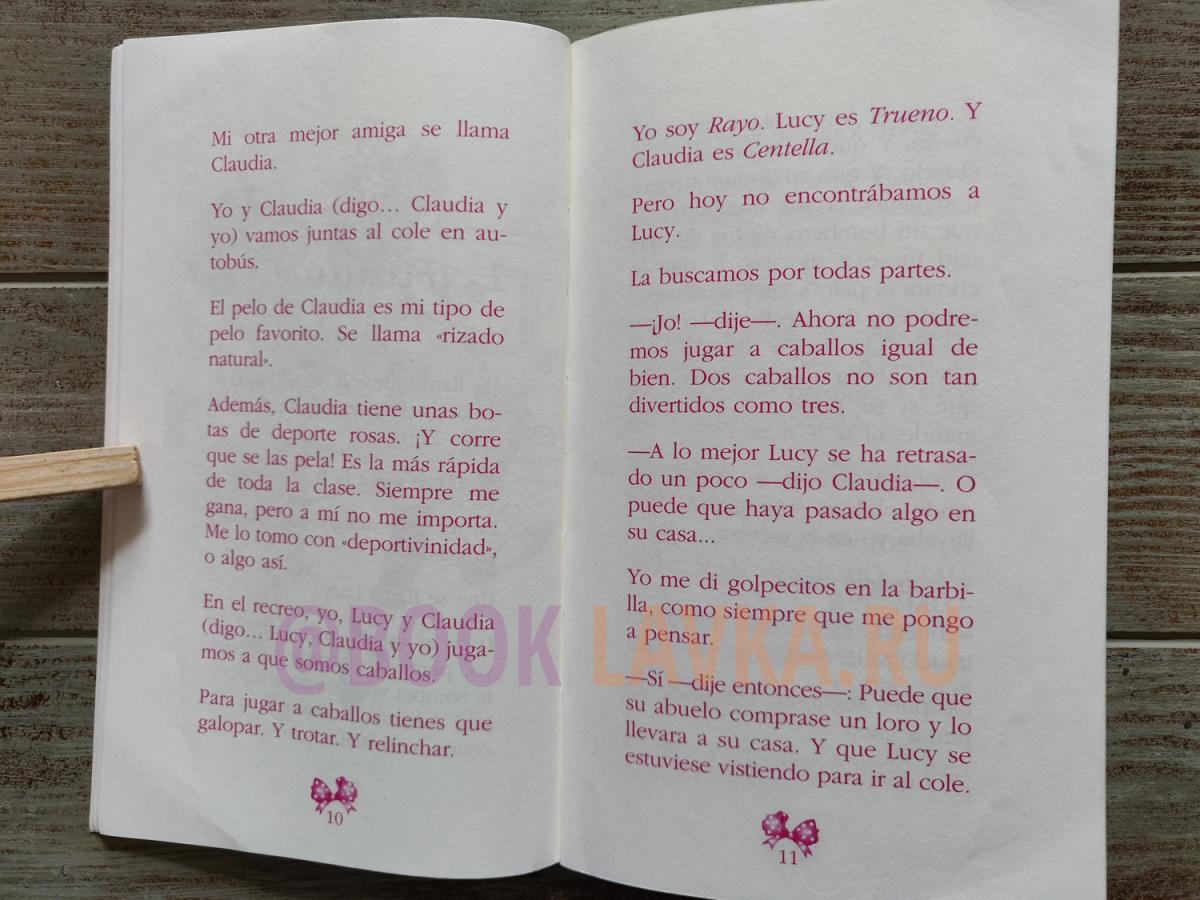 Mi otra mejor amiga se llama
Claudia.
Yo y Claudia (digo... Claudia y
yo) vamos juntas al cole en au-
tobús.
El pelo de Claudia es mi tipo de
pelo favorito. Se llama «rizado
natural».
Además, Claudia tiene unas bo-
tas de deporte rosas. ¡Y corre
que se las pela! Es la más rápida
de toda la clase. Siempre me
gana, pero a mí no me importa.
Me lo tomo con «deportivinidad»,
o algo así.
En el recreo, yo, Lucy y Claudia
(digo... Lucy, Claudia y yo) juga-
mos a que somos caballos.
Para jugar a caballos tienes que
galopar. Y trotar. Y relinchar.
10
Yo soy Rayo. Lucy es Trueno. Y
Claudia es Centella.
Pero hoy no encontrábamos a
Lucy.
La buscamos por todas partes.
—¡Jo! —dije—. Ahora no podre-
mos jugar a caballos igual de
bien. Dos caballos no son tan
divertidos como tres.
—A lo mejor Lucy se ha retrasa-
do un poco —dijo Claudia—. O
puede que haya pasado algo en
su casa...
Yo me di golpecitos en la barbi-
lla, como siempre que me pongo
a pensar.
—Sí —dije entonces—: Puede que
su abuelo comprase un loro y lo
llevara a su casa. Y que Lucy se
estuviese vistiendo para ir al cole.
11
@BOOK LAVKA.RU